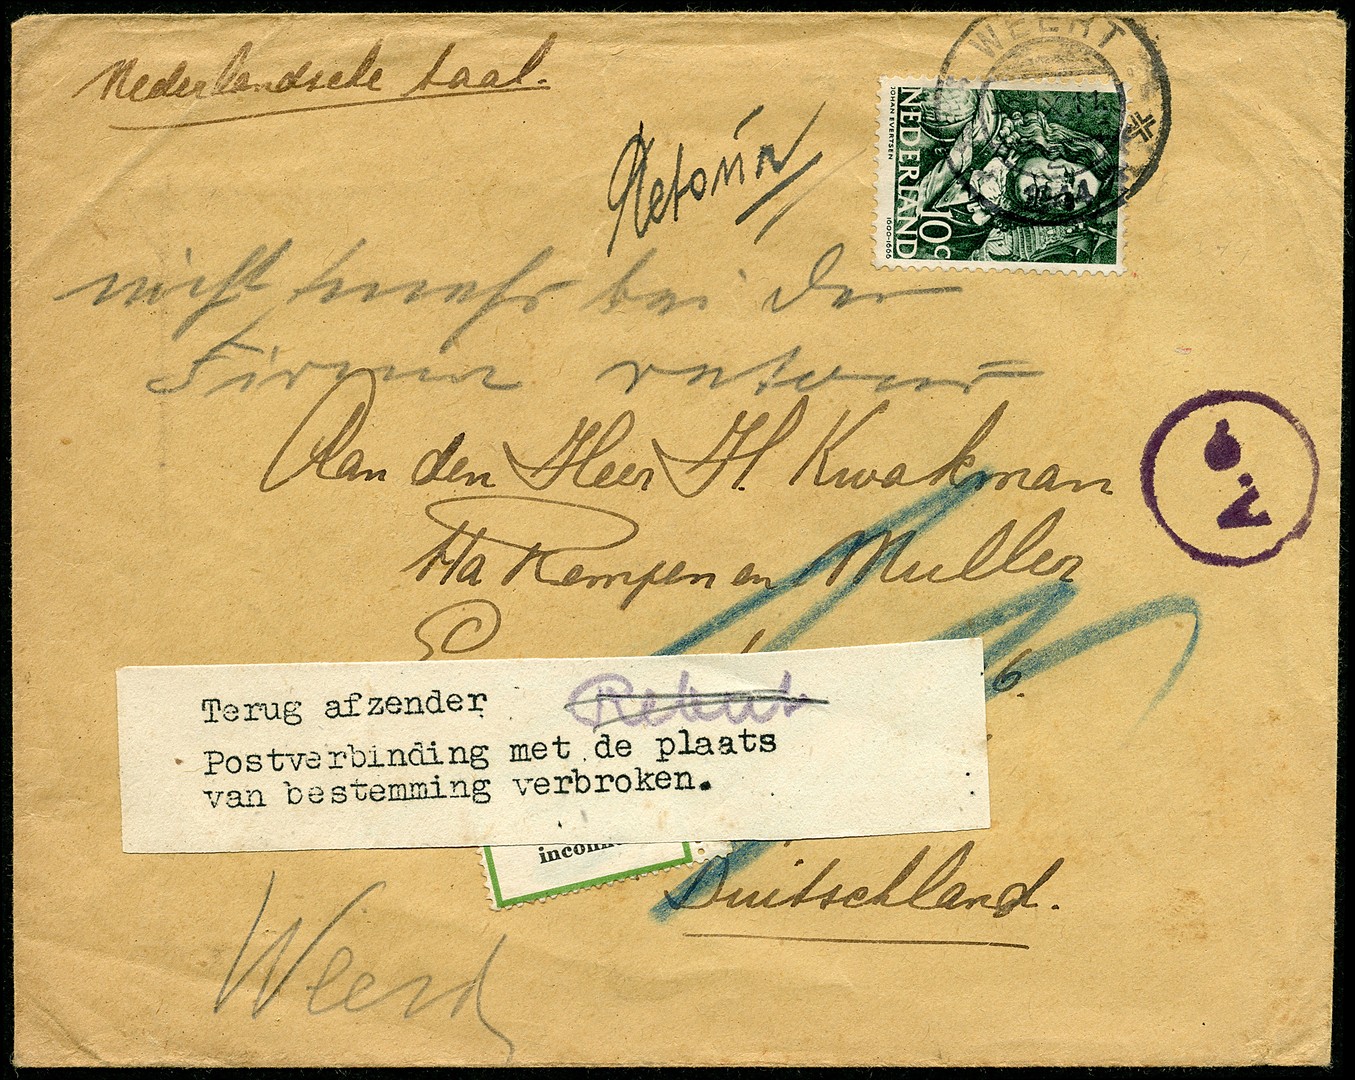 Nederlandsche taal.
WEERT
JOHAN EVERTSEN
NEDERLAND
1600-1666
10c
Retour
nicht mehr bei der
Firma retour
Aan den Heer H. Kwakman
Fta Kempen en Muller
6.
Terug afzender
Postverbinding met de plaats
van bestemming verbroken.
Duitschland.
Weert